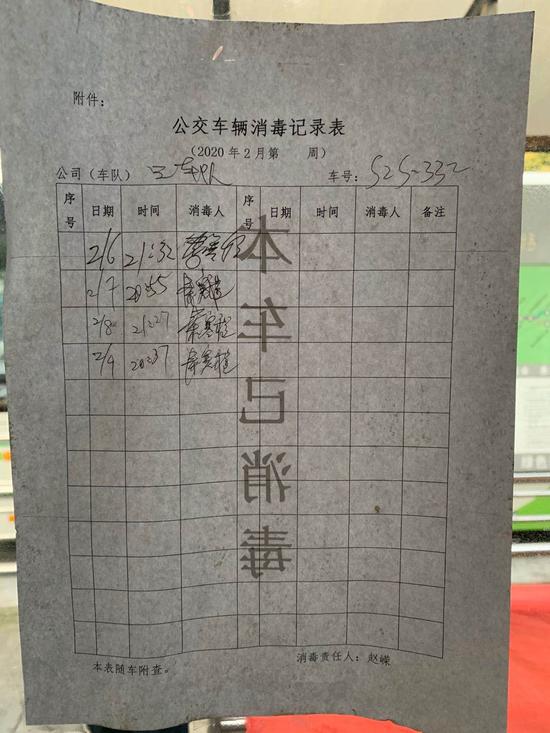 附件：
公交车辆消毒记录表
（2020年2月第　　周）
公司（车队） 三车队 车号：S2S-332
序号 日期 时间 消毒人 序号 日期 时间 消毒人 备注
2/6 21:32
2/7 20:55
2/8 21:27
2/9 20:37
本车已消毒
消毒责任人：赵嵘
本表随车附查。